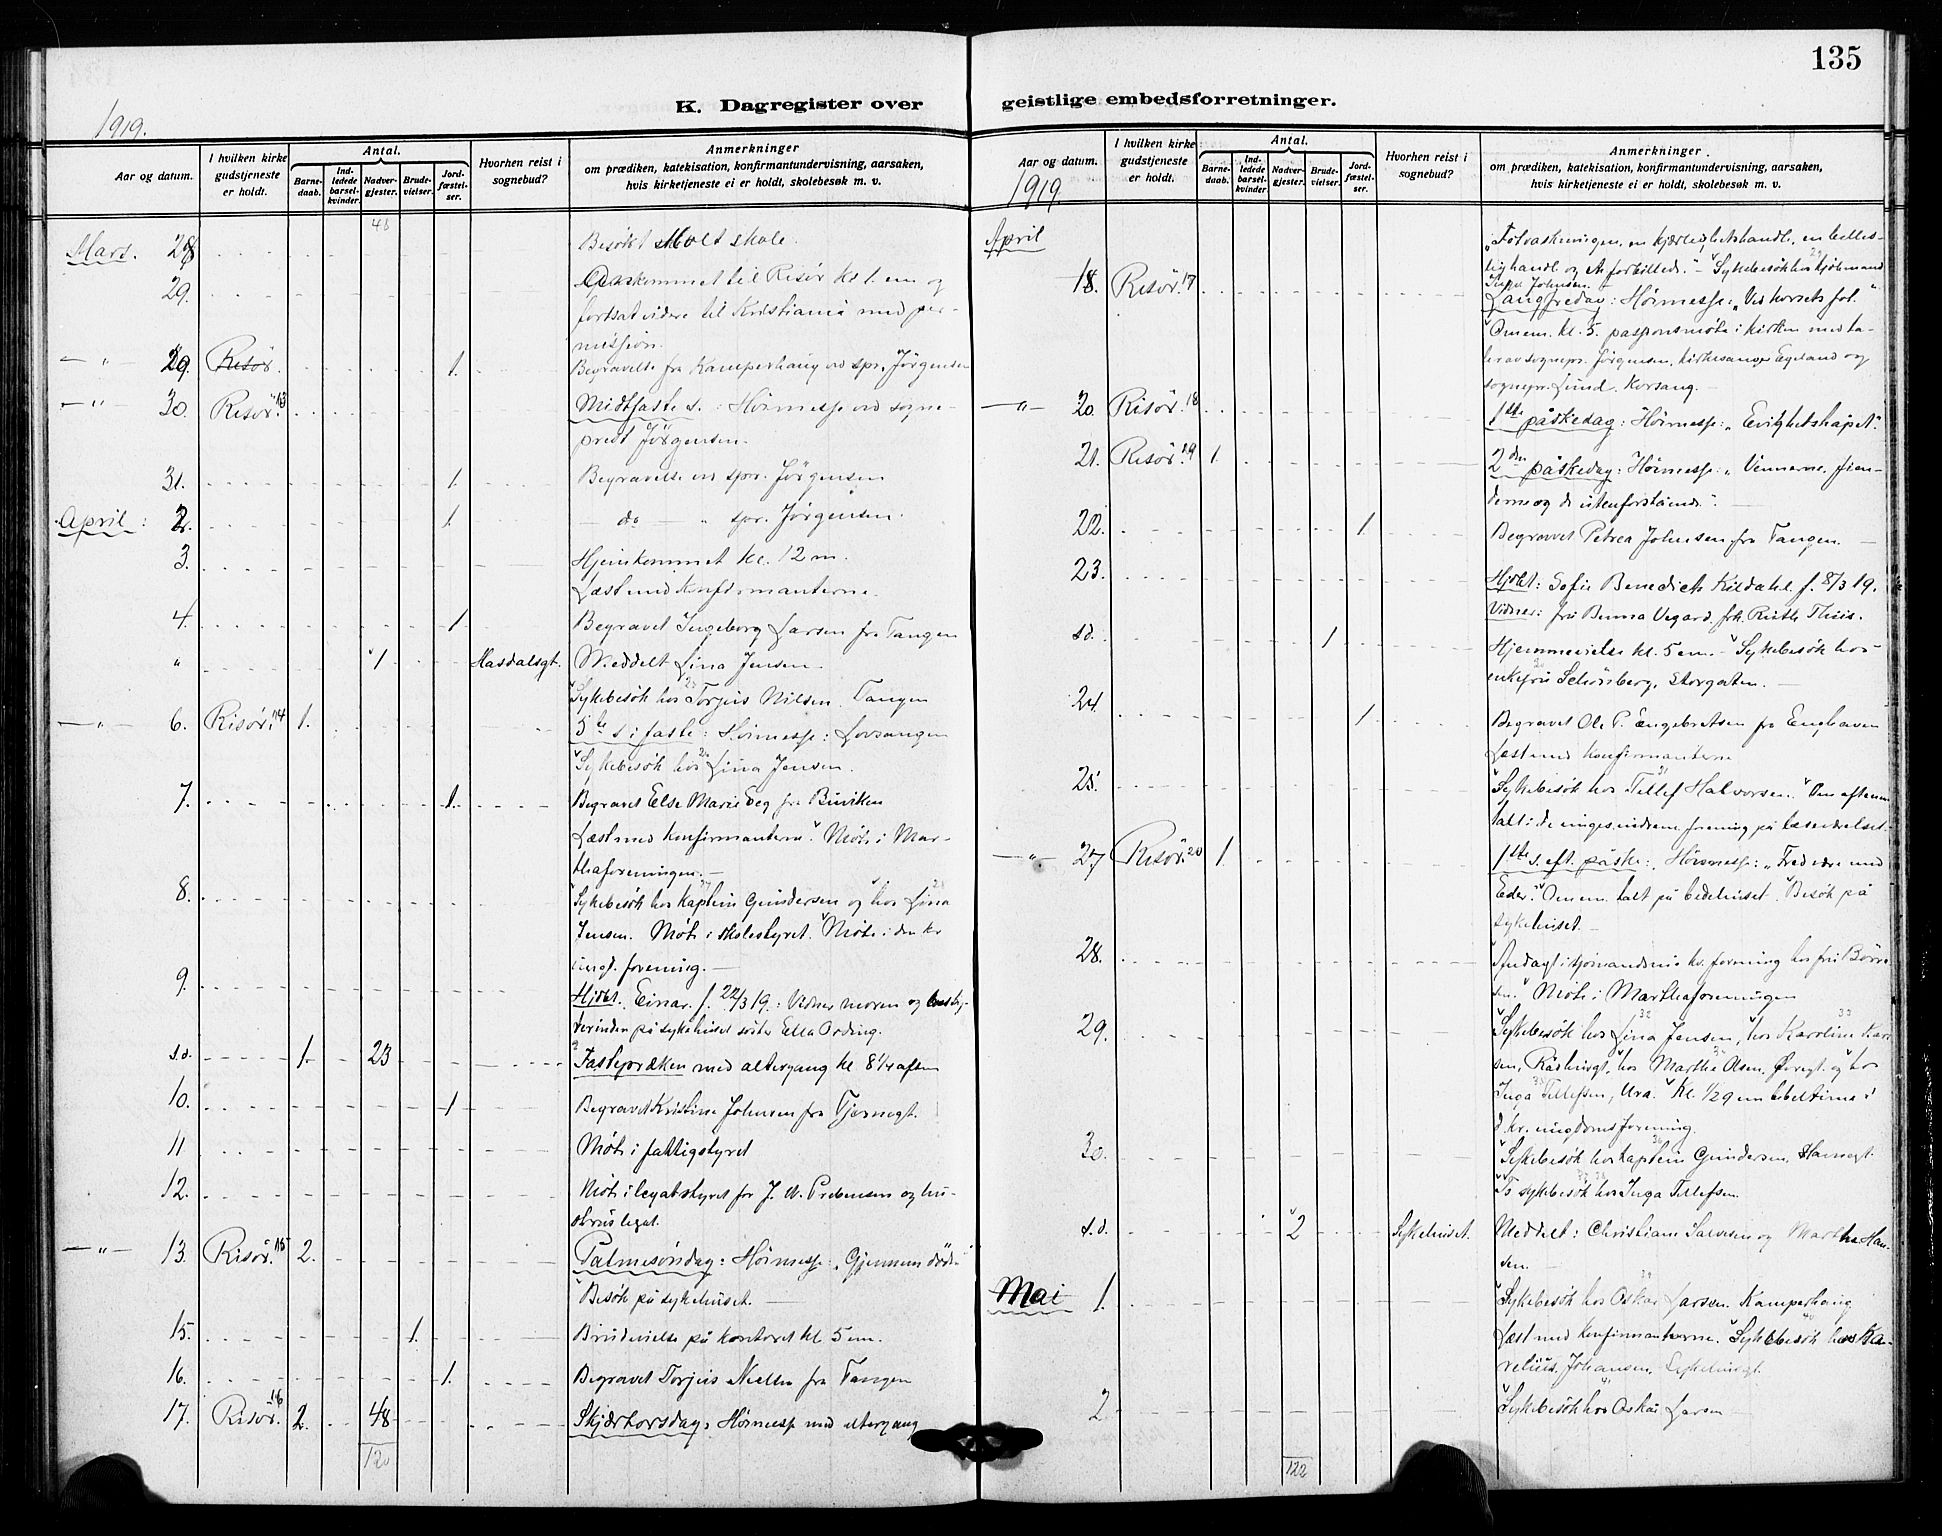 135
K. Dagregister over geistlige embedsforretninger.
1919.
Aar og datum.
I hvilken kirke gudstjeneste er holdt.
Antal.
Barnedaab.
Indledede barselkvinder.
Nadvergjester.
Brudevielser.
Jordfæstelser.
Hvorhen reist i sognebud?
Anmerkninger
om prædiken, katekisation, konfirmantundervisning, aarsaken,
hvis kirketjeneste ei er holdt, skolebesøk m. v.
48
Mars. 28 Besökt skole.
29. til Risør kl 1. em og
fortsat videre til Kristiania med per-
mission.
— " — 29. Risør. 1. Begravelse fra Kamperhaug ved spr. Jörgensen
— " — 30. Risør. 13 Midtfaste s.: Höimesse ved sogne-
prest Jörgensen.
31. 1. Begravelse ved spr. Jörgensen
April: 2. 1. — do — " spr. Jörgensen.
3. Hjemkommet kl. 12 m.
Læst med konfirmanterne.
4. 1 Begravet Ingeborg Larsen fra Tangen
" 1 Hasdalsgt. Meddelt Lina Jensen.
Sykebesök hos Torjus Nilsen. Tangen
— " — 6. Risør. 14 1. 5te s i faste: Höimesse: Lovsangen
Sykebesök hos Lina Jensen.
7. 1. Begravet Else Marie Eeg fra Buviken
Læst med konfirmanterne. Möte i Mar-
thaforeningen.—
8. Sykebesök hos kaptein Gundersen og hos Lina
Jensen. Möte i skolestyret. Möte i den kr
ungd. forening.—
9. Hjdbt. Einar f. 22/3 19: Vidner moren og besty-
rerinden på sykehuset söster Ella Ording.
s.d. 1. 23 Fastepræken med altergang kl 8 1/4 aften
10. 1 Begravet Kristine Johnsen fra Tjernsgt.
11 Möte i fattigstyret
12. Möte i legatstyret for J. W. Prebensen og hu-
strus legat.
— " — 13. Risør. 15 2. Palmesöndag: Höimesse: „Gjennem död
Besök på sykehuset.—
15. 1. Brudevielse på kontoret kl. 5 em.
16. 1. Begravet Torjus Nielsen fra Tangen
17. Risør. 16 2. 48 Skjærtorsdag: Höimesse med altergang
120
Aar og datum.
1919.
I hvilken kirke gudstjeneste er holdt.
Antal.
Barnedaab.
Indledede barselkvinder.
Nadvergjester.
Brudevielser.
Jordfæstelser.
Hvorhen reist i sognebud?
Anmerkninger.
om prædiken, katekisation, konfirmantundervisning, aarsaken,
hvis kirketjeneste ei er holdt, skolebesøk m. v.
April „Fotvaskningen, en kjærlighetshandl., en billed-
lighandl og et forbillede." — Sykebesök hos kjöbmand
Johnsen.
18. Risør. 17 Langfredag: Höimesse: „Ved korsets fot."
Omem. kl. 5. pasjonsmöte i kirken med ta-
ler av sognepr. Jörgensen, kirkesanger Egeland og
sognepr. Lund. Korsang.—
— " — 20. Risør. 18 1ste påskedag: Höimesse: „Evighetshåpet".
21. Risør. 19 1. 2den påskedag: Höimesse: „Vennerne, fien-
derne og de utenforstående".—
22. 1 Begravet Petrea Johnsen fra Tangen. —
23. Hjdbt: Sofie Benedicte Kildahl f. 8/3 19.
Vidner: fru Benna Vegard, frk. Ruth Thiis.
s.d. 1 Hjemmevielse kl. 5 em. — Sykebesök hos
enkefru Schönberg, Storgaten. —
24. 1. Begravet Ole P. Engebretsen fra Enghaven
Læst med konfirmanterne
25. Sykebesök hos Tellef Halvorsen.
talt i de unges forening på
— " — 27 Risør. 20 1. 1ste s. eft. påske: Höimesse: „Fred være med
Eder." Omem. talt på bedehuset. Besök på
sykehuset.—
28. Andagt i kv. forening hos fru
Möte i Marthaforeningen
29. Sykebesök hos Lina Jensen, hos Karoline
hos Marthe Olsen, Övregt. og hos
Inga Tellefsen, Ura. Kl. 1/2 9 em bibeltime i
d kr. ungdomsforening.
30. Sykebesök hos kaptein Gundersen, Havnegt.
To sykebesök hos Inga Tellefsen.
s.d. 2 Sykehuset. Meddelt: Christiane Salvesen og Marthe Han-
sen.—
Mai 1. Sykebesök hos Oskar Larsen. Kamperhaug
Læst med konfirmanterne. Sykebesök hos Ka-
relius Johansen,
2 Sykebesök hos Oskar Larsen —
122